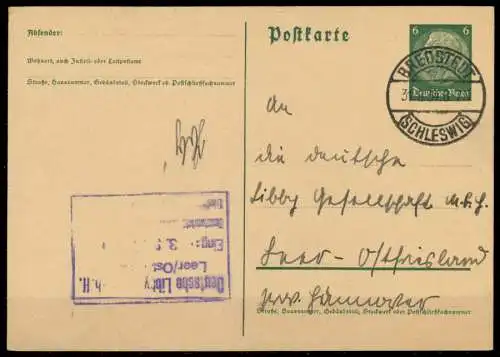 Absender:
Wohnort, auch Zustell- oder Leitpostamt
Straße, Hausnummer, Gebäudeteil, Stockwerk od. Postschließfachnummer
Postkarte
6 6
Deutsches Reich
BREDSTEDT
(SCHLESWIG)
An
die deutsche
Libby Gesellschaft m.b.H.
Leer - Ostfriesland
prov. Hannover
Straße, Hausnummer, Gebäudeteil, Stockwerk oder Postschließfachnummer
Deutsche Libby b. H.
Leer/Ost
Eing. 3.